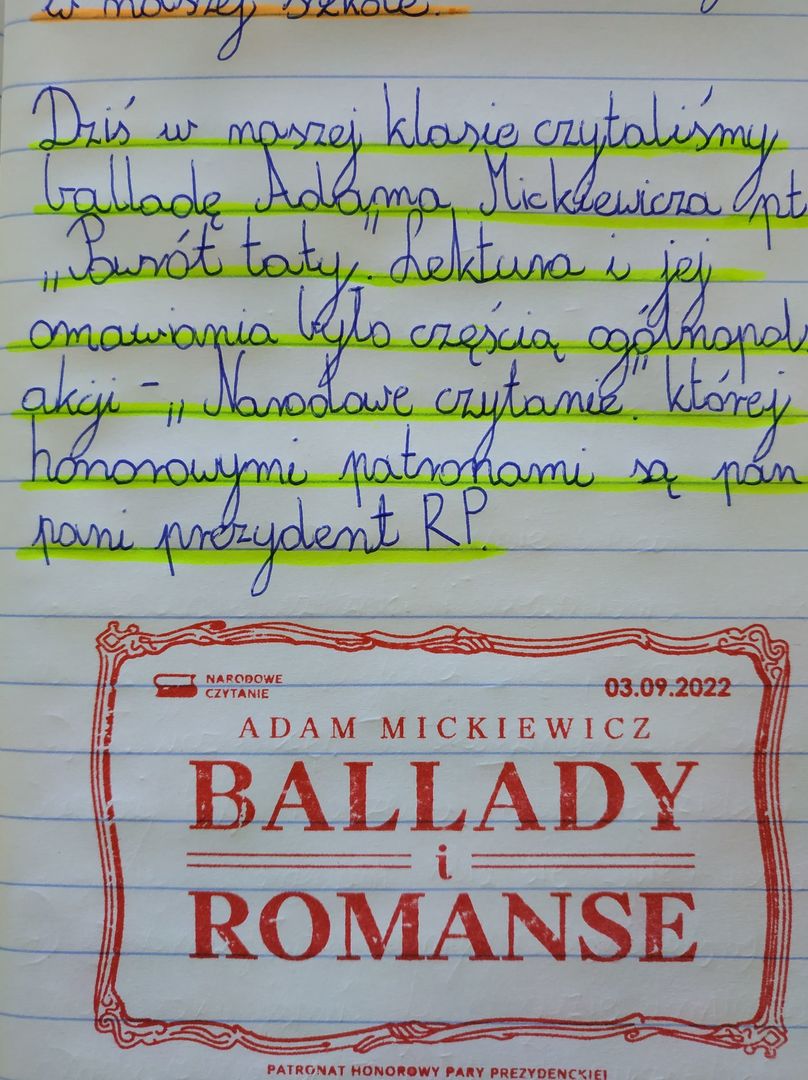 w naszej szkole.
Dziś w naszej klasie czytaliśmy
balladę Adama Mickiewicza pt
„Powrót taty”. Lektura i jej
omawiania było częścią ogólnopol
akcji - „Narodowe czytanie”. której
honorowymi patronami są pan
pani prezydent RP.
NARODOWE
CZYTANIE
03.09.2022
ADAM MICKIEWICZ
BALLADY
i
ROMANSE
PATRONAT HONOROWY PARY PREZYDENCKIEJ